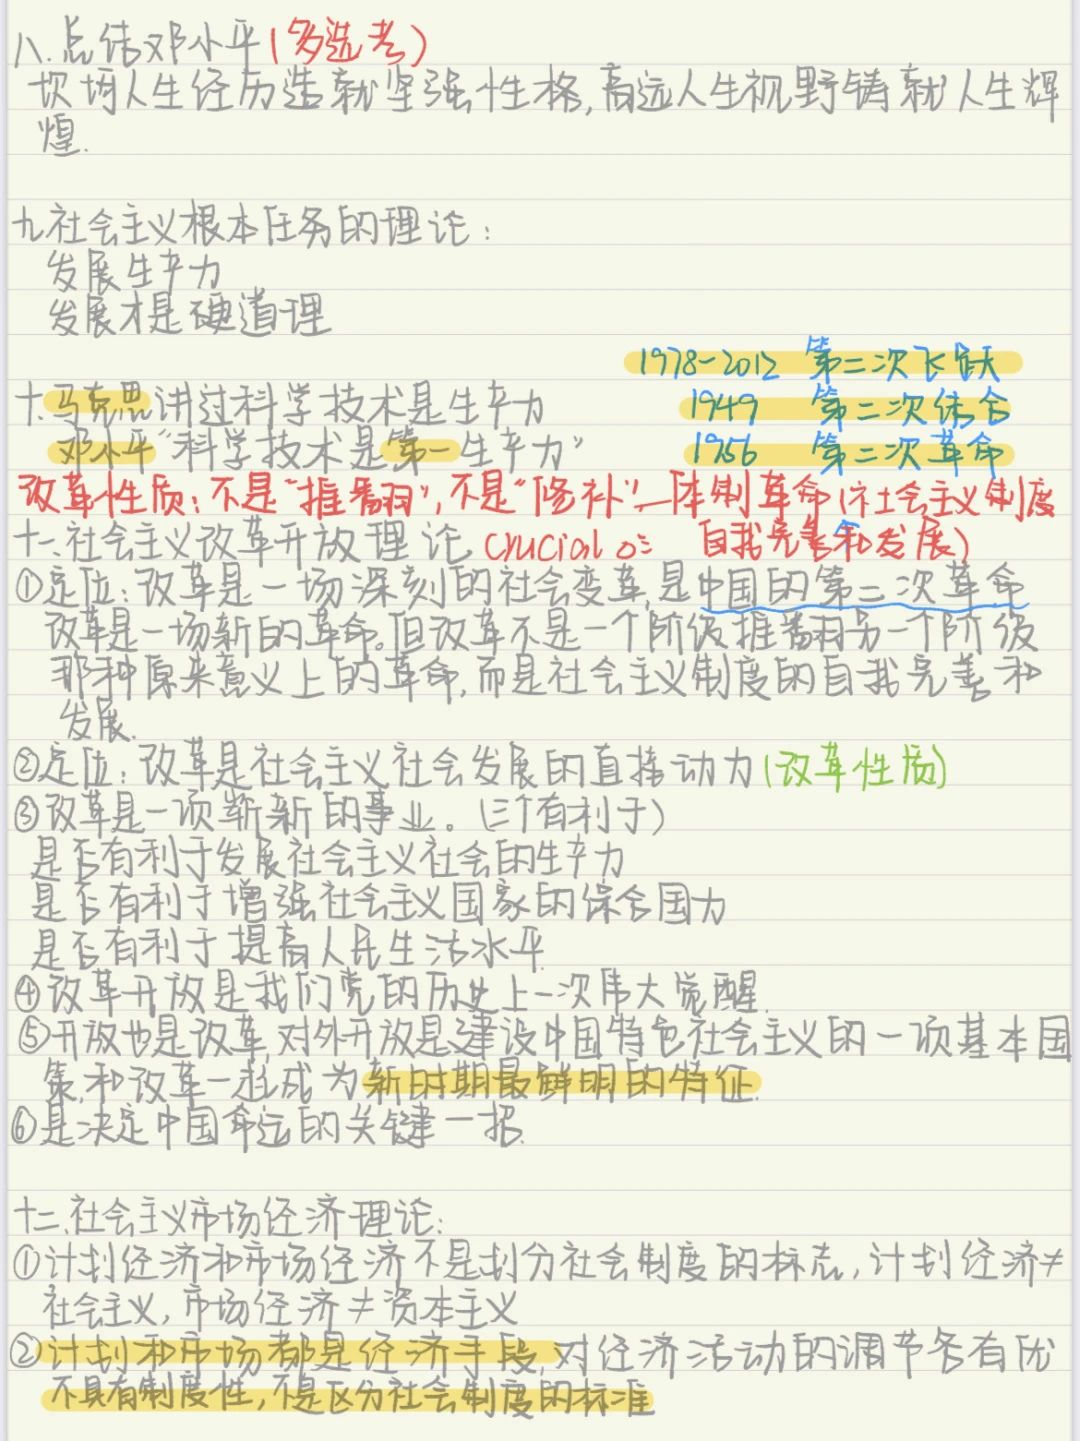 八.总结邓小平(多选考)
坎坷人生经历造就坚强性格,高远人生视野铸就人生辉
煌.
九社会主义根本任务的理论:
发展生产力
发展才是硬道理
1978-2012 第二次飞跃
十.马克思讲过科学技术是生产力
1949 第二次结合
邓小平“科学技术是第一生产力”
1956 第二次革命
改革性质:不是“推翻”,不是“修补”—体制革命(社会主义制度
十一.社会主义改革开放理论 crucial 自我完善和发展)
①定位:改革是一场深刻的社会变革,是中国的第二次革命
改革是一场新的革命。但改革不是一个阶级推翻另一个阶级
那种原来意义上的革命,而是社会主义制度的自我完善和
发展.
②定位:改革是社会主义社会发展的直接动力(改革性质)
③改革是一项崭新的事业。(三个有利于)
是否有利于发展社会主义社会的生产力
是否有利于增强社会主义国家的综合国力
是否有利于提高人民生活水平
④改革开放是我们党的历史上一次伟大觉醒.
⑤开放也是改革,对外开放是建设中国特色社会主义的一项基本国
策,和改革一起成为新时期最鲜明的特征.
⑥是决定中国命运的关键一招.
十二.社会主义市场经济理论:
①计划经济和市场经济不是划分社会制度的标志,计划经济≠
社会主义,市场经济≠资本主义
②计划和市场都是经济手段,对经济活动的调节各有优
不具有制度性,不是区分社会制度的标准